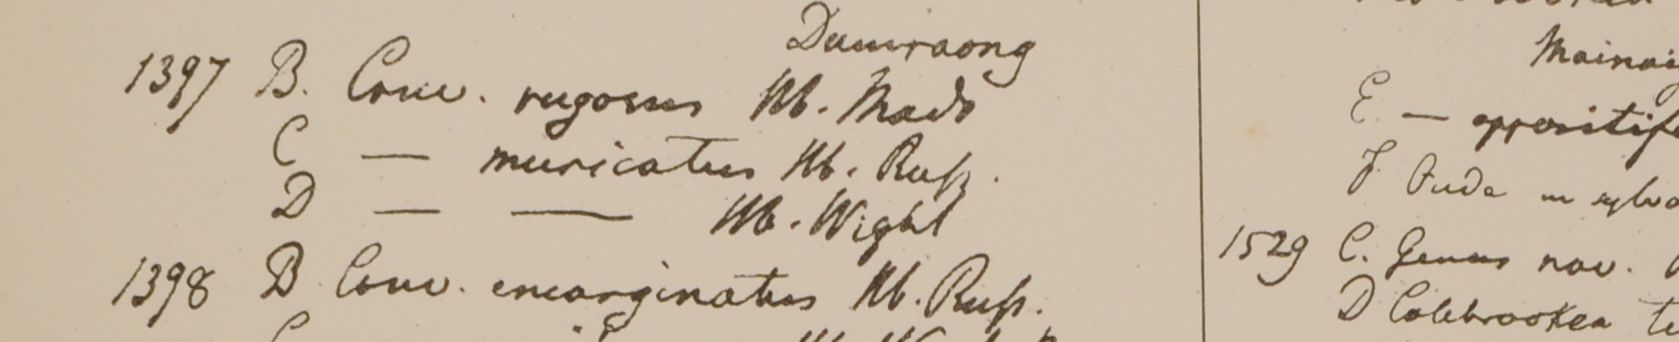 Damraong
1397 B. Conv. rugosus Hb. Mads
C — muricatus Hb. Russ.
D — — Hb. Wight
1398 B Conv. emarginatus Hb. Russ.
C
E — oppositif
F Oude in sylva
1529 C. Genus nov.
D Colebrookea